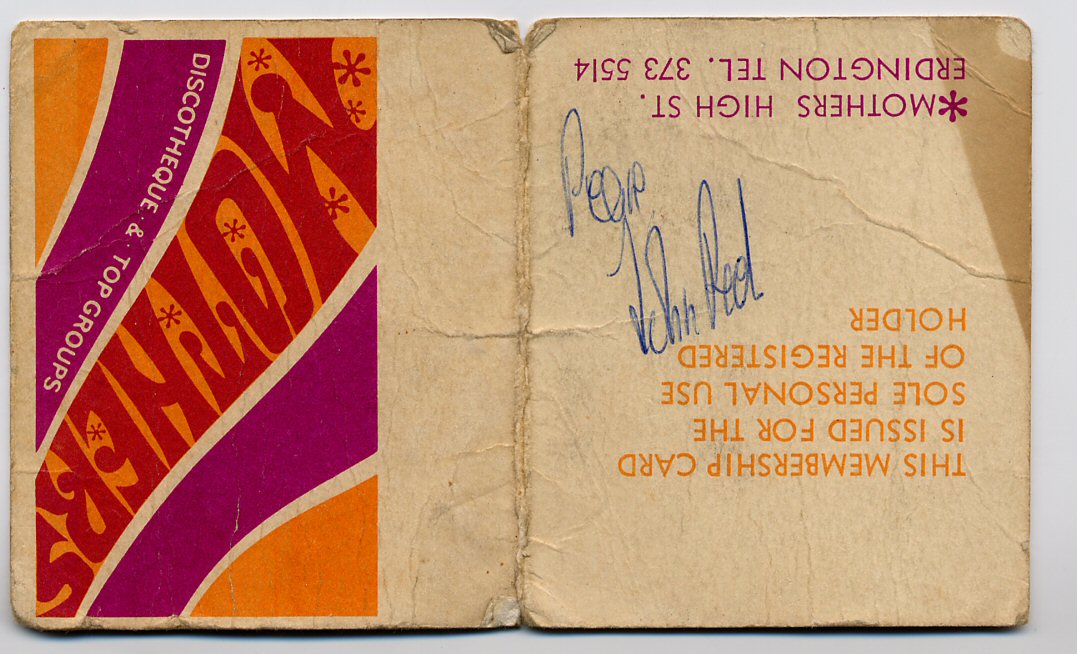 MOTHERS
DISCOTHEQUE & TOP GROUPS
THIS MEMBERSHIP CARD
IS ISSUED FOR THE
SOLE PERSONAL USE
OF THE REGISTERED
HOLDER
John Peel
*MOTHERS HIGH ST.
ERDINGTON TEL. 373 5514